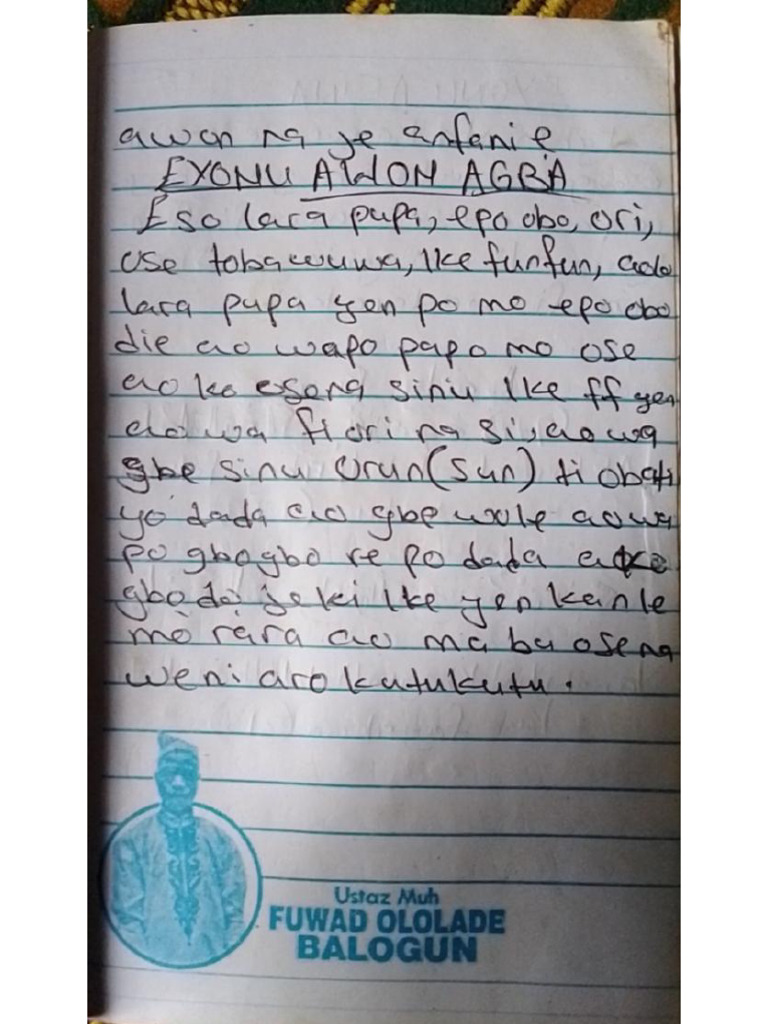 awon na je anfanie
EYONU AWON AGBA
Eso lara pupa, epo obo, ori,
ose tobawuwa, Ike funfun, ao lo
lara pupa yen po mo epo obo
die ao wapo papo mo ose
ao ko esena sinu Ike ff yen
ao wa fi ori na si, ao wa
gbe sinu orun (sun) ti obati
yo dada ao gbe wole ao wa
po gbogbo re po dada a
gbodo jeki Ike yen kanle
mo rara ao ma bu ose na
weni aro kutukutu.
Ustaz Muh
FUWAD OLOLADE
BALOGUN